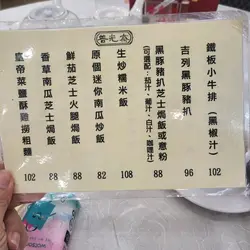 善元窩
鐵板小牛排（黑椒汁）
102
吉列黑豚豬扒
96
黑豚豬扒芝士焗飯或意粉
（可選配：茄汁、葡汁、白汁、咖喱汁）
88
生炒糯米飯
108
原個迷你南瓜炒飯
82
鮮茄芝士火腿焗飯
88
香草南瓜芝士焗飯
88
皇帝菜鹽酥雞撈粗麵
102